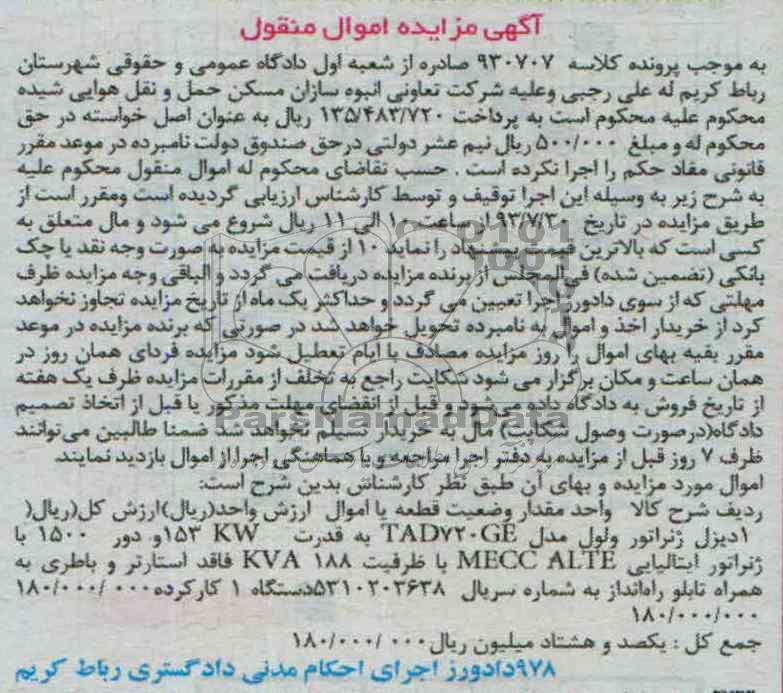 آگهی مزایده اموال منقول
به موجب پرونده کلاسه ۹۳۰۷۰۷ صادره از شعبه اول دادگاه عمومی و حقوقی شهرستان
رباط کریم له علی رجبی وعلیه شرکت تعاونی انبوه سازان مسکن حمل و نقل هوایی شیده
محکوم علیه محکوم است به پرداخت ۱۳۵/۴۸۳/۷۲۰ ریال به عنوان اصل خواسته در حق
محکوم له و مبلغ ۵۰۰/۰۰۰ ریال نیم عشر دولتی درحق صندوق دولت نامبرده در موعد مقرر
قانونی مفاد حکم را اجرا نکرده است . حسب تقاضای محکوم له اموال منقول محکوم علیه
به شرح زیر به وسیله این اجرا توقیف و توسط کارشناس ارزیابی گردیده است ومقرر است از
طریق مزایده در تاریخ ۹۳/۷/۳۰ از ساعت ۱۰ الی ۱۱ ریال شروع می شود و مال متعلق به
کسی است که بالاترین قیمت پیشنهاد را نماید ۱۰ از قیمت مزایده به صورت وجه نقد یا چک
بانکی (تضمین شده) فی المجلس از برنده مزایده دریافت می گردد و الباقی وجه مزایده ظرف
مهلتی که از سوی دادورز اجرا تعیین می گردد و حداکثر یک ماه از تاریخ مزایده تجاوز نخواهد
کرد از خریدار اخذ و اموال به نامبرده تحویل خواهد شد در صورتی که برنده مزایده در موعد
مقرر بقیه بهای اموال را روز مزایده مصادف با ایام تعطیل شود مزایده فردای همان روز در
همان ساعت و مکان برگزار می شود شکایت راجع به تخلف از مقررات مزایده ظرف یک هفته
از تاریخ فروش به دادگاه داده می‌شود و قبل از انقضای مهلت مذکور یا قبل از اتخاذ تصمیم
دادگاه(درصورت وصول شکایت) مال به خریدار تسیلم نخواهد شد ضمنا طالبین می‌توانند
ظرف ۷ روز قبل از مزایده به دفتر اجرا مراجعه و با هماهنگی اجرا از اموال بازدید نمایند.
اموال مورد مزایده و بهای آن طبق نظر کارشناس بدین شرح است:
ردیف شرح کالا واحد مقدار وضعیت قطعه یا اموال ارزش واحد(ریال)ارزش کل(ریال(
۱دیزل ژنراتور ولول مدل TAD۷۲۰GE به قدرت ۱۵۳ KWو دور ۱۵۰۰ با
ژنراتور ایتالیایی MECC ALTE با ظرفیت ۱۸۸ KVA فاقد استارتر و باطری به
همراه تابلو راه‌انداز به شماره سریال ۵۳۱۰۲۰۳۶۳۸دستگاه ۱ کارکرده۱۸۰/۰۰۰/۰۰۰
۱۸۰/۰۰۰/۰۰۰
جمع کل : یکصد و هشتاد میلیون ریال۱۸۰/۰۰۰/۰۰۰
۹۷۸دادورز اجرای احکام مدنی دادگستری رباط کریم
ParsNamadData